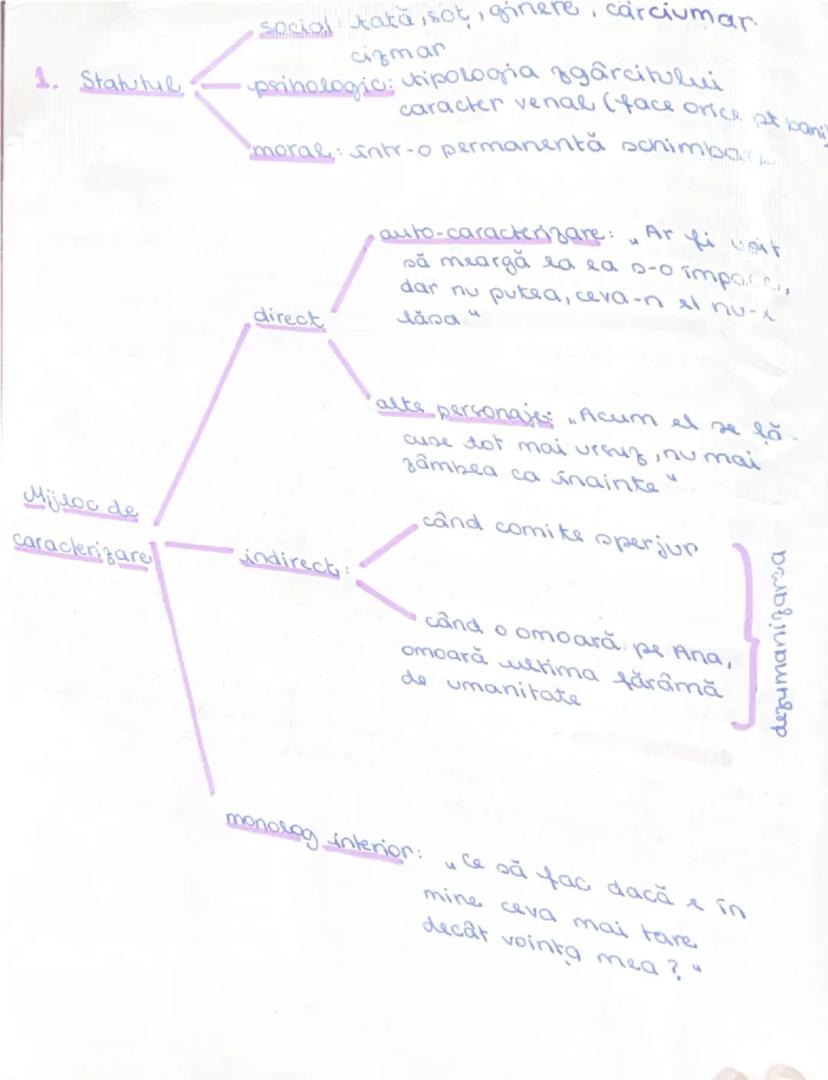 social: tată, soț, ginere, cârciumar
cizmar
1. Statutul
psihologic: tipologia zgârcitului
caracter venal (face orice pt bani)
moral: într-o permanentă
auto-caracterizare: „Ar fi
să meargă la ea s-o
dar nu putea, ceva-n el nu-l
lăsa"
direct
alte personaje: „Acum el se fă-
cuse tot mai ursuz, nu mai
zâmbea ca înainte"
Mijloc de
caracterizare
când comite sperjur
indirect:
când o omoară pe Ana,
omoară ultima fărâmă
de umanitate
dezumanizarea
monolog interior: „Ce să fac dacă e în
mine ceva mai tare
decât voința mea?"